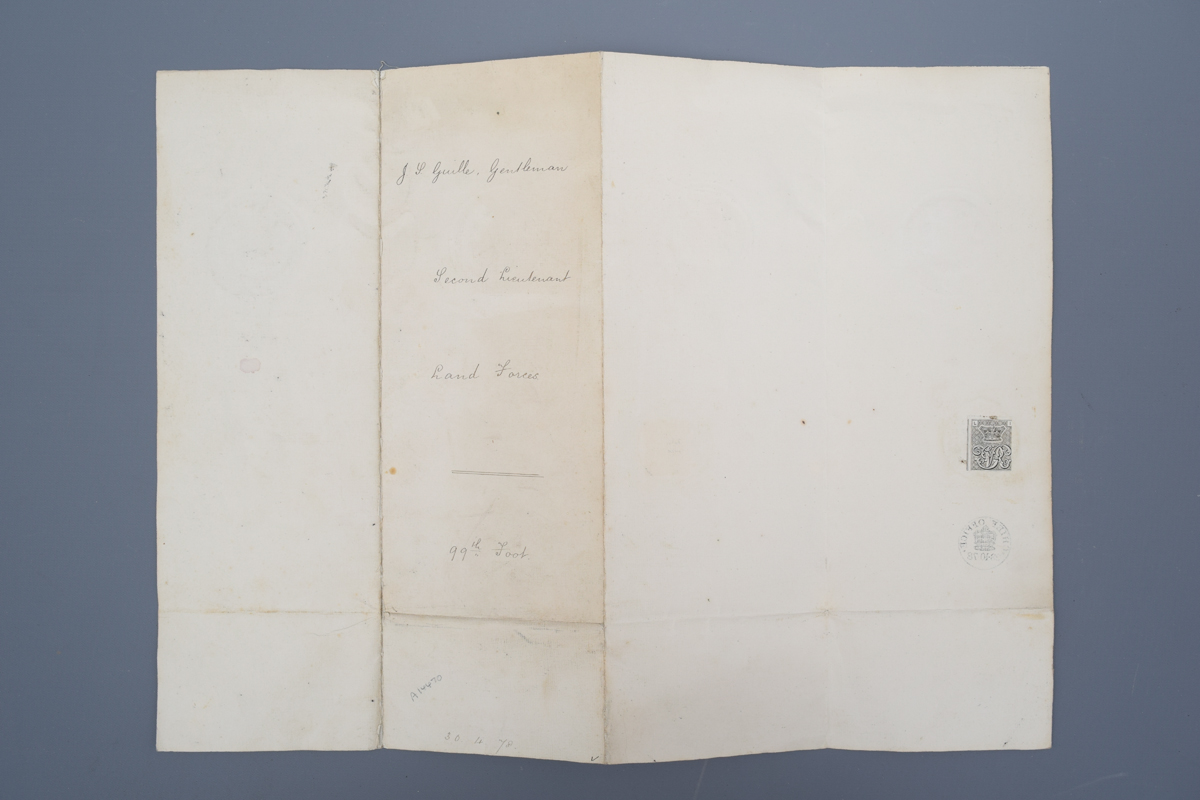 J S Guille, Gentleman
Second Lieutenant
Land Forces
99th Foot.
30 4 78